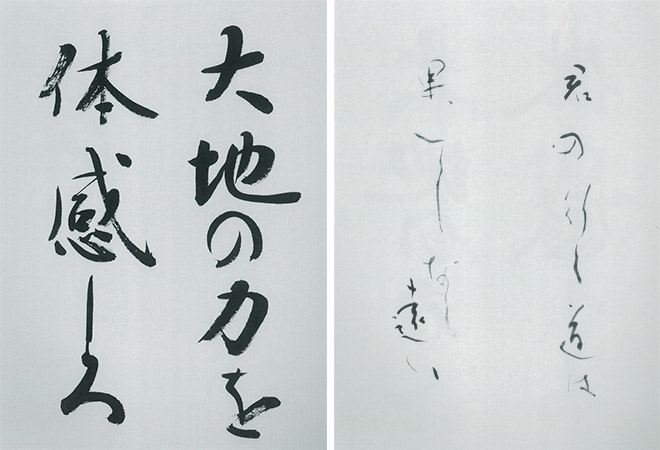 大地の力を
体感しろ
君の行く道は
果てしなく遠い